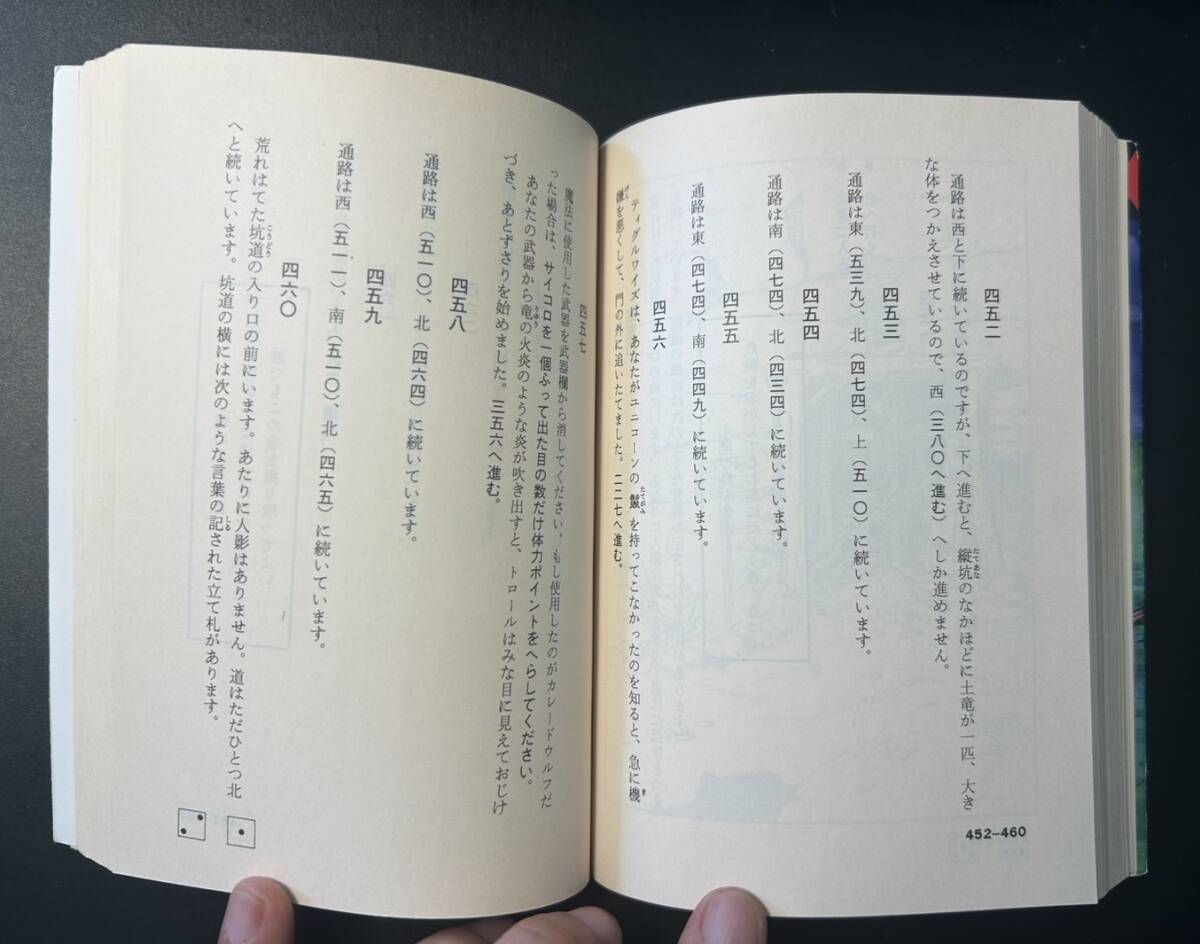 四五二
通路は西と下に続いているのですが、下へ進むと、縦坑のなかほどに土竜が一匹、大き
な体をつかえさせているので、西（三八〇へ進む）へしか進めません。
四五三
通路は東（五三九）、北（四七四）、上（五一〇）に続いています。
四五四
通路は南（四七四）、北（四三四）に続いています。
四五五
通路は東（四七四）、南（四四九）に続いています。
四五六
ティグルワイズは、あなたがユニコーンの鬣を持ってこなかったのを知ると、急に機
嫌を悪くして、門の外に追いたてました。二二七へ進む。
452–460
四五七
魔法に使用した武器を武器欄から消してください。もし使用したのがカレードウルフだ
った場合は、サイコロを一個ふって出た目の数だけ体力ポイントをへらしてください。
あなたの武器から竜の火炎のような炎が吹き出すと、トロールはみな目に見えておじけ
づき、あとずさりを始めました。三五六へ進む。
四五八
通路は西（五一〇）、北（四六四）に続いています。
四五九
通路は西（五一一）、南（五一〇）、北（四六五）に続いています。
四六〇
荒れはてた坑道の入り口の前にいます。あたりに人影はありません。道はただひとつ北
へと続いています。坑道の横には次のような言葉の記された立て札があります。